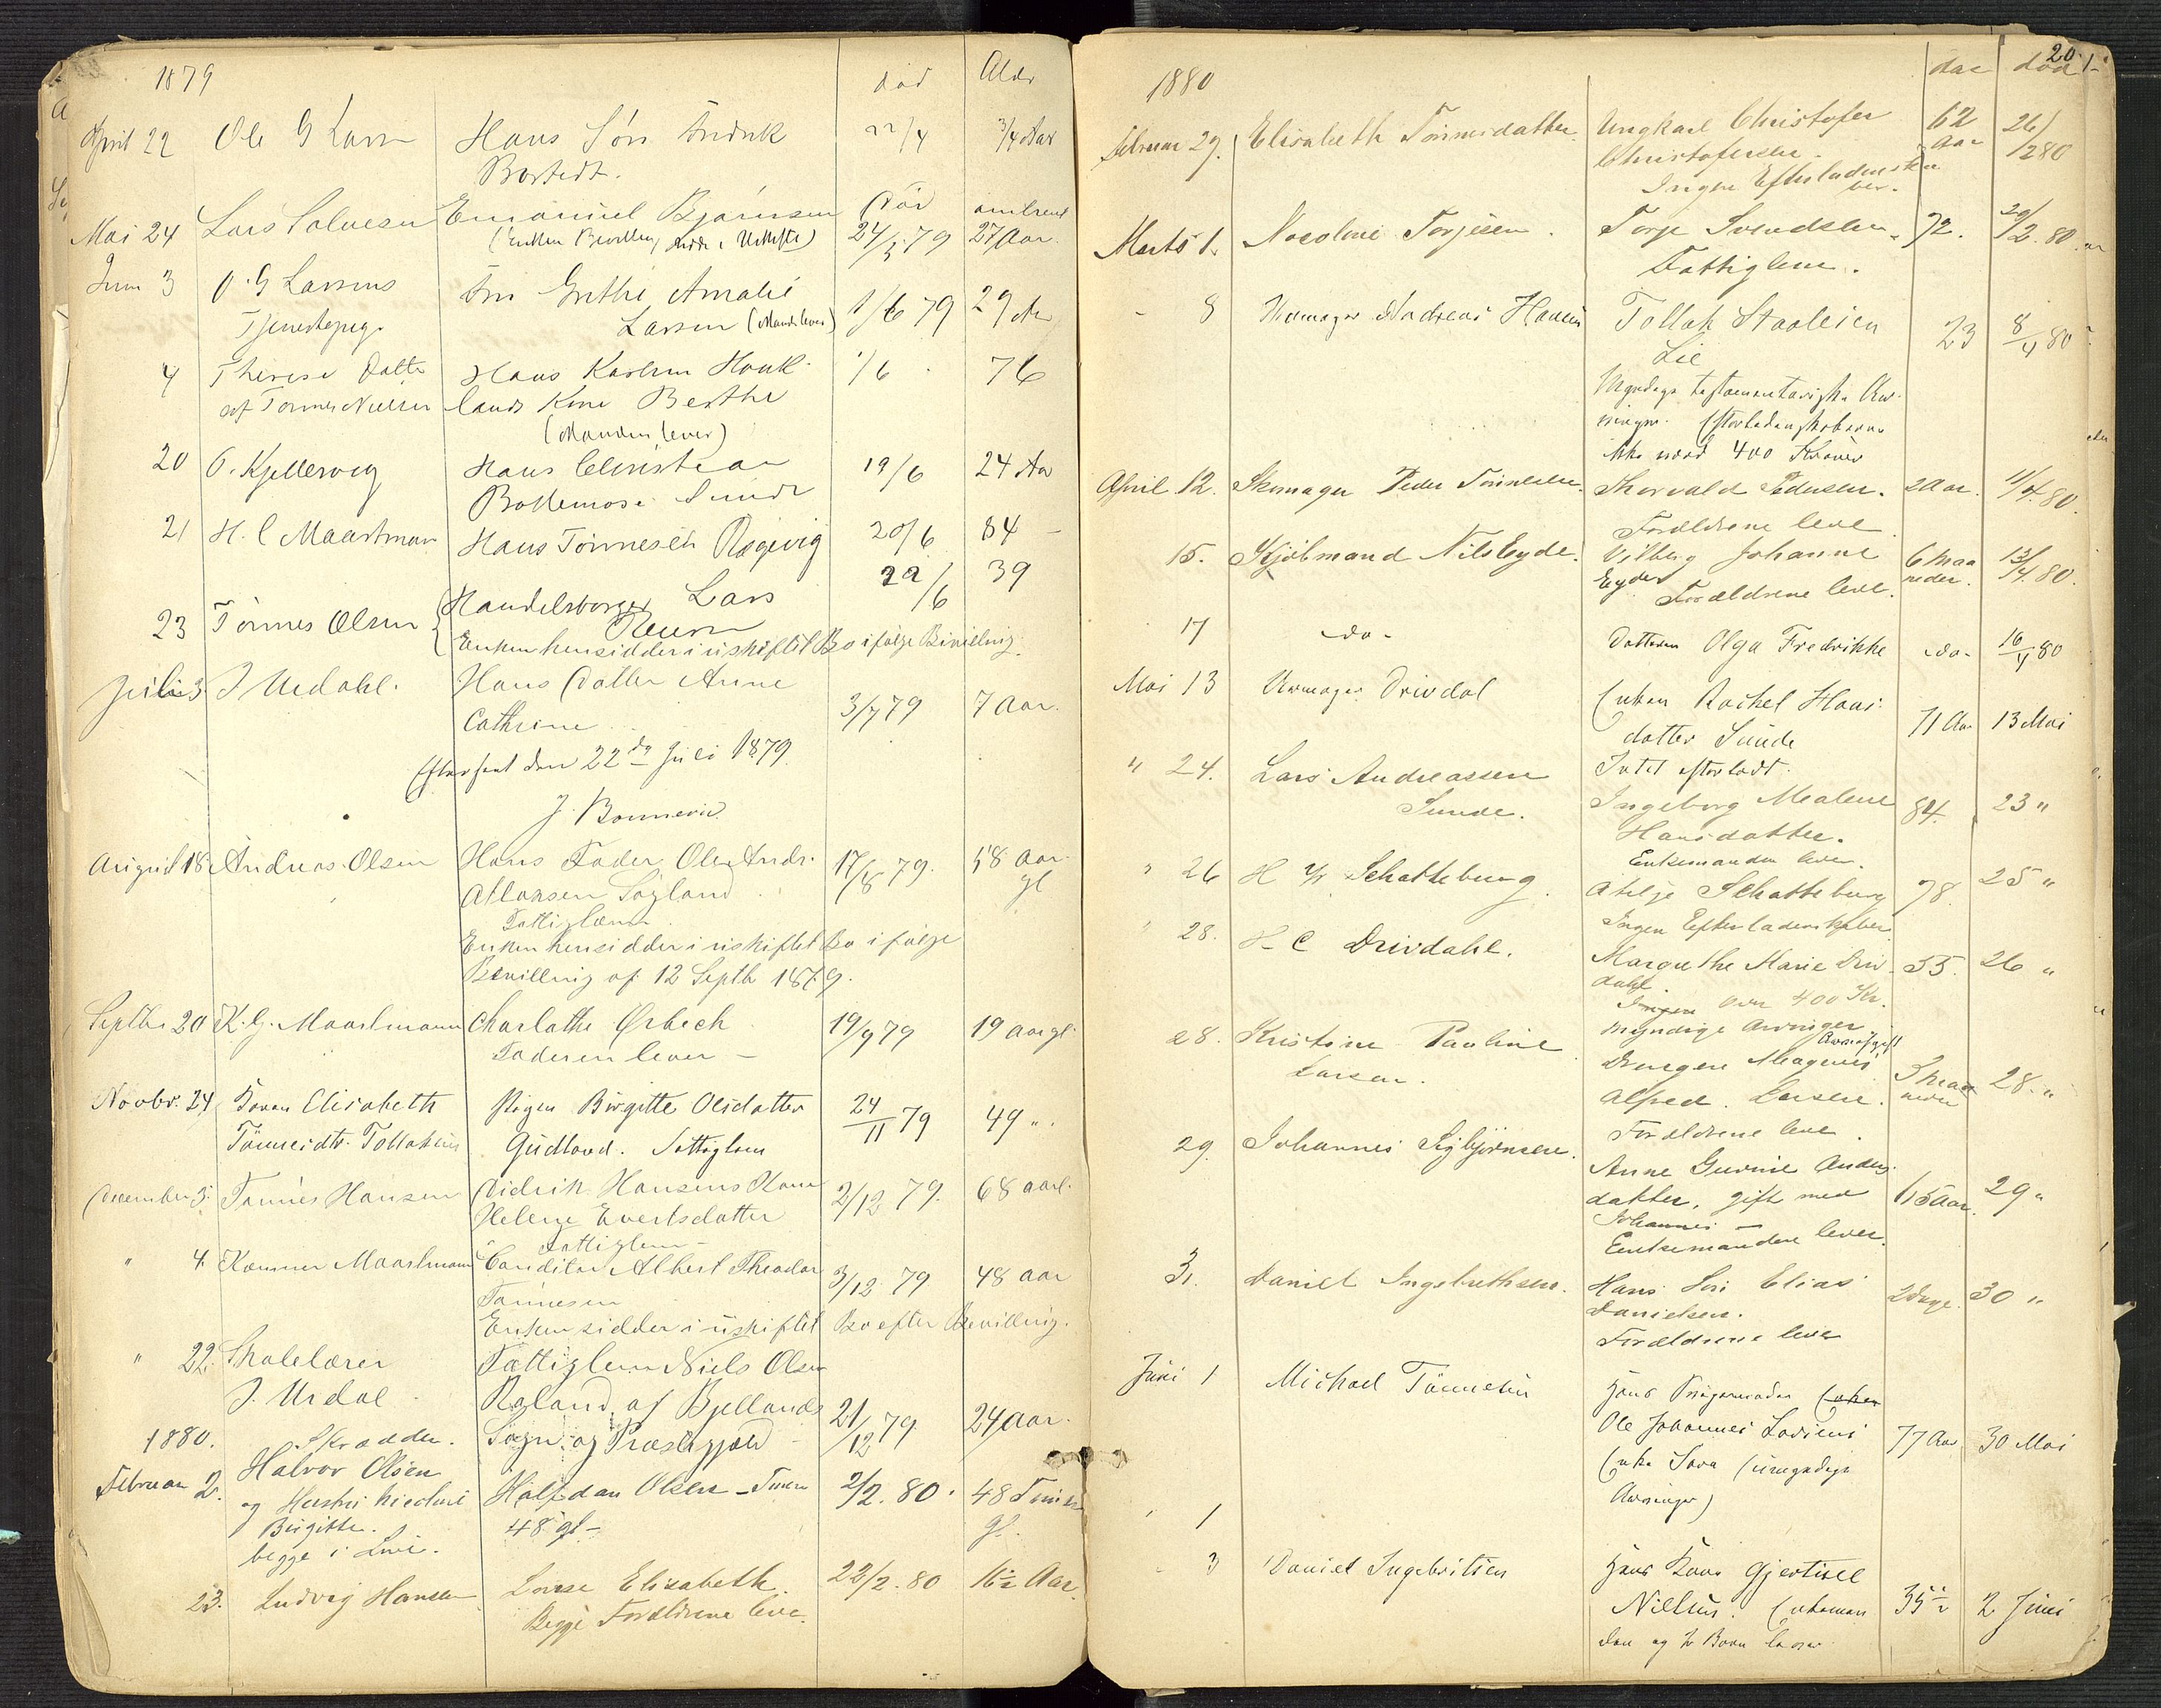 1879 død Alder
April 22 Ole G Larsen Hans Søn Fredrik 22/4 3/4 Aar
Mai 24 Lars Salvesen Emanuel Bjørnsen Død omtrent
24/5 79 27 Aar.
Juni 3 O. G Larsens Fru Grethe Amalie
Larsen (Manden lever) 1/6 79 29 Aar
4 Therese Datter Hans Karlsen Hauk- 1/6 76
af Tønnes Nielsen lands Kone Berthe
(Manden lever)
20 O. Kjellevig Hans Christian 19/6 24 Aar
21 H. C Maastman Hans Tønnesen Rægevig 20/6 84 -
23 Tønnes Olsen Handelsborger Lars 22/6 39
Enken hensidder i uskiftet Bo ifølge Bevilling.
Juli 3 J Urdahl. Hans Datter Anne
Cathrine 3/7 79 7 Aar.
den 22de Juli 1879.
August 18 Andreas Olsen Hans Fader Ole Andr. 17/8 79. 58 Aar
gl
Fattiglem
Enken hensidder i uskiftet Bo ifølge
Bevilling af 12 Septb 1879.
Septbr 20 K. G. Maastmann Charlotte Ørbech 19/9 79 19 aar gl.
Faderen lever -
Novbr. 24 Elisabeth Pigen Birgitte Olsdatter 24/11 79 49 ".
Tønnesdtr. Tollaksen Gudland. Fattiglem
December 3. Tønnes Hansen Didrik Hansens Kone 2/12 79. 68 aar.
Helene Evertsdatter
Fattiglem -
" 4. Kæmner Maastmann Conditor Albert Theodor 3/12 79 48 aar
Tønnesen
Enken sidder i uskiftet Bo efter Bevilling.
" 22. Skolelærer Fattiglem Niels Olsen
J. Urdal Roland, af Bjellands 21/12 79. 24 Aar.
1880. Skrædder. Sogn og Præstegjæld -
Februar 2. Halvor Olsen Halfdan Olsen - Timer 2/2. 80. 48 Timer
og Hustru 48 gl - gl.
Birgitte.
begge i Live.
23. Ludvig Hansen Lovise Elisabeth. 22/2. 80 16 1/2 Aar
Begge Forældrene leve.
20
1880 død
Februar 29. Elisabeth Tønnesdatter. Ungkarl Christofer 62 26/2 80
Christofersen. Aar
Ingen Efterladenska
ber.
Marts 1. Nicoline Torjesen. Torje Svendsen. 72. 29/2. 80.
Fattiglem.
- 8 Urmager Andreas Hansen Tollak Staalesen
Lie 23 8/4 80
Myndige testamentariske Ar-
vinger. Efterladenskaberne
ikke naad 400 Kroner
April 12. Skomager Peder Tønnesen. Thorvald Pedersen. 2 Aar. 11/4. 80.
Forældrene leve
15. Kjøbmand Nils Eyde. Vilberg Johanne 6 Maa 13/4. 80.
Eyde neder.
Forældrene leve.
17 - do - Datteren Olga Fredrikke - do - 16/4 80
Mai 13 Urmager Drivdal Enken Rachel Hans-
datter Sunde 71 Aar 13 Mai
Intet efterladt.
" 24. Lars Andreassen Ingeborg Malene 84. 23 "
Sunde. Hansdatter.
Enkemanden lever.
" 26 H Schatteburg Schatteburg 78. 25 "
Ingen Efterladenskaber
" 28. H C Drivdahl. Margrethe Marie Driv- 55. 26 "
dahl.
Ingen over 400 Kr.
myndige Arvinger
28. Kristine Pauline Drengen Magnus 3 maa 28. "
Larsen. Alfred Larsen. neder
Forældrene leve.
29. Johannes Sigbjørnsen. Anne Gurine Anders-
datter, gift med 65 Aar. 29 "
Johannes -
Enkemanden lever.
31. Daniel Ingebrethsen. Hans Søn Elias 2 Dage. 30 "
Danielsen.
Forældrene leve
Juni 1 Michael Tønnesen Hans
Ole Johannes 77 Aar 30 Mai
Enke Sara (umyndige
Arvinger)
" 1
- 3 Daniel Ingebritsen Hans Kone Gjertine
Nielsen. Enkeman 35 1/2 2 Juni
den og 2 Børn lever